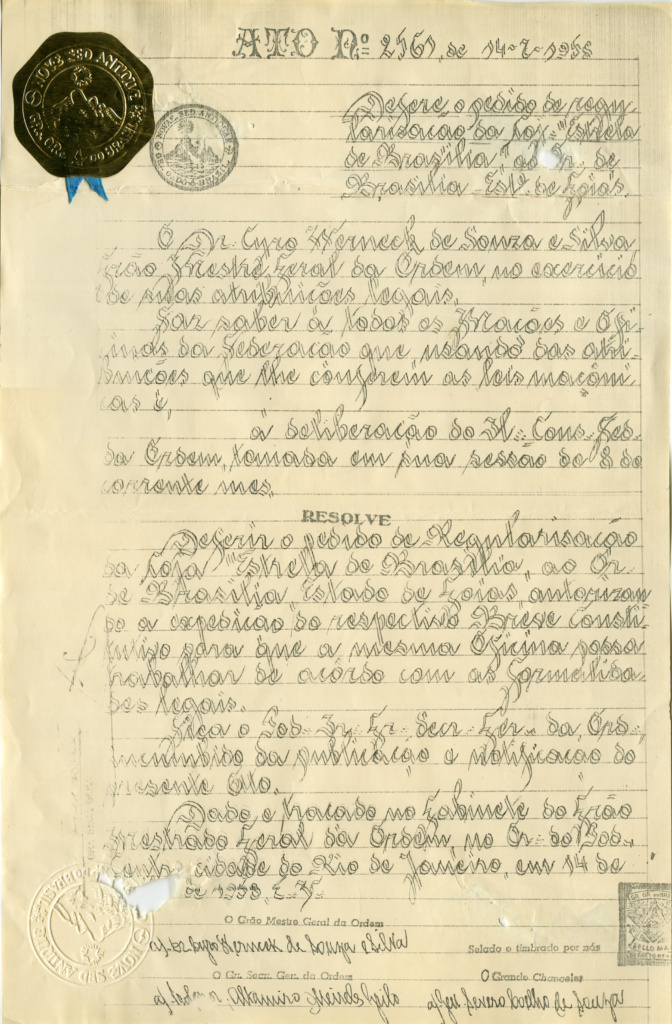 ATO Nº 2161, de 14-7-1958
Defere o pedido de regu
larisação da Loj∴ "Estrela
de Brasilia" ao Or∴ de
Brasilia Estº de Goiás.
O Dr. Cyro Werneck de Souza e Silva
Grão Mestre Geral da Ordem, no exercicio
de suas atribuições legais,
Faz saber á todos os Mações e Ofi
cinas da Federacão que, usando das atri
buicões que lhe conferem as leis maçôni
cas e,
á deliberação do Il∴ Cons∴ Fed∴
da Ordem, tomada em sua sessão de 8 do
corrente mes,
RESOLVE
Deferir o pedido de Regularisação
da Loja "Estrella de Brasilia", ao Or∴
de Brasilia, Estado de Goias, autorizan
do a expedicão do respectivo Breve Consti
tutivo para que a mesma Oficina possa
trabalhar de acôrdo com as formalida
des legais.
Fica o Pod∴ Ir∴ Gr∴ Secr∴ Ger∴ da Ord∴
incumbido da publicação e notificacão do
presente Ato.
Dado e tracado no Gabinete do Grão
Mestrado Geral da Ordem, no Or∴ do Pod∴
Centr∴ cidade do Rio de Janeiro, em 14 de
de 1958, E∴V∴
O Grão Mestre Geral da Ordem
a) Cyro Werneck de Souza e Silva
Selado e timbrado por nós
O Gr. Secr. Ger. da Ordem
O Grande Chanceler
Altamiro
Severo Coelho de Souza